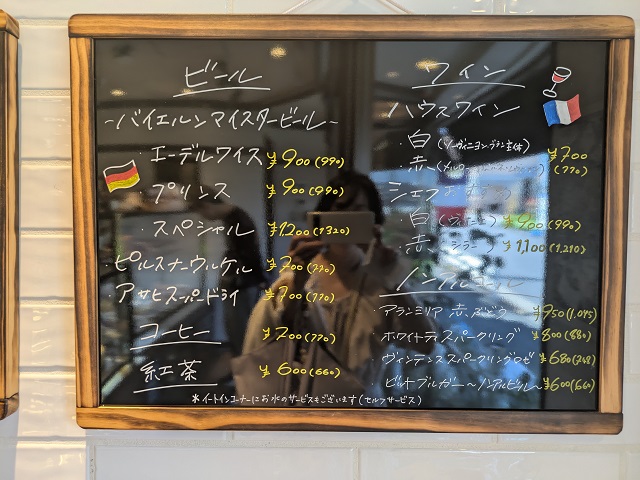 ビール
~バイエルンマイスタービール~
・エーデルワイス ¥900(990)
・プリンス ¥900(990)
・スペシャル ¥1200(1320)
・ピルスナーウルケル ¥700(770)
・アサヒスーパードライ ¥700(770)
コーヒー ¥700(770)
紅茶 ¥600(660)
ワイン
ハウスワイン
・白(ソーヴィニヨン・ブラン主体) ¥700
・赤 (770)
シェフ
・白 ¥900(990)
・赤 ¥1,100(1,210)
ノンアルコール
・アランミリア 赤ぶどう ¥950(1,045)
・ホワイトティスパークリング ¥800(880)
・ヴィンテンススパークリングロゼ ¥680(748)
・ビットブルガー~ノンアルビール~ ¥600(660)
*イートインコーナーにお水のサービスもございます(セルフサービス)